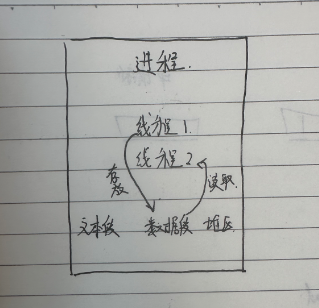 进程.
线程1.
线程2
存放
读取.
文本段 数据段 堆区